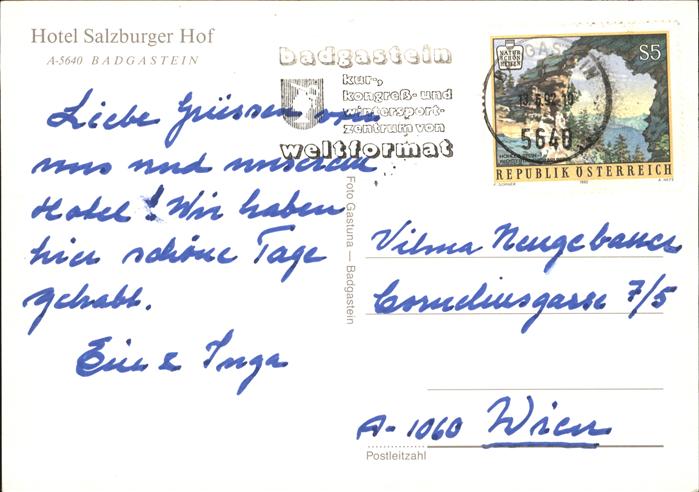 Hotel Salzburger Hof
A-5640 BADGASTEIN
badgastein
kur-,
kongreß- und
wintersport-
zentrum von
weltformat
NATUR
SCHÖN
HEITEN
S5
BADGASTEIN
5640
REPUBLIK ÖSTERREICH
1992
Liebe Grüssen von
uns und unserem
Hotel! Wir haben
hier schöne Tage
gehabt.
& Inga
Foto Gastuna — Badgastein
Vilma Neugebauer
Corneliusgasse 7/5
A-1060 Wien
Postleitzahl